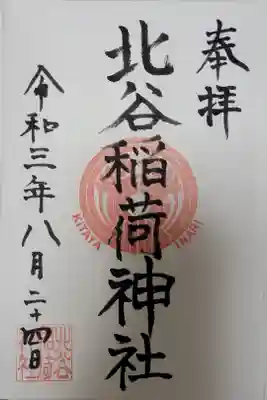 奉拝
北谷稲荷神社
令和三年八月二十四日
KITAYA INARI